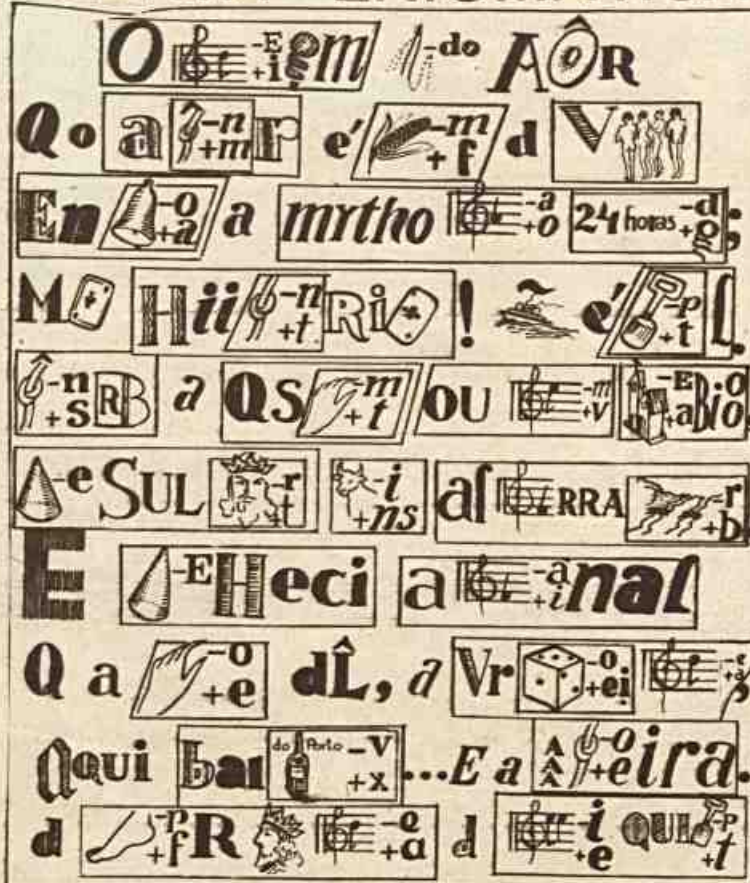 O -E +i m -do AÔR
Q o a -n +m r e' -m + f d V
En -o +a a mrtho -a +o 24 horas -d +g ;
M Hii -n +t Ri ! ~ e' -p +t l.
^ -n +s RB a QS m + t OU -m +v -E +a Bio o.
-e SUL -r +t -i +ns al RRA r +b,
E -E Heci a -a +i nal
Q a -o +e dL̂, a Vr -o +ei -e +a ;
Aqui bai do Porto -V +x ...E a AAA -o +e ira.
d -p +f R -e +a d -i +e QUI -p +t